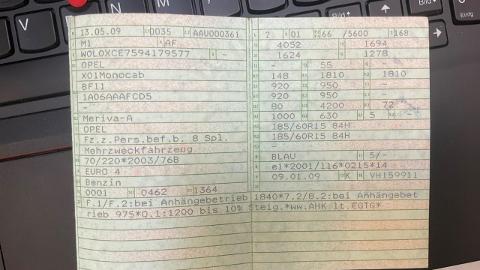 13.05.09 0035 AAU000361
M1 AF
W0L0XCE7594179577 -
OPEL
X01Monocab
BF11
1A06AAAFCD5
-
Meriva-A
OPEL
Fz.z.Pers.bef.b. 8 Spl.
Mehrzweckfahrzeug
70/220*2003/76B
EURO 4
Benzin
0001 0462 1364
2 01 66 /5600 168
4052 1694
1624 1278
- 55
148 1810 1810
920 950 -
920 950 -
80 4200 72
1000 630 5 -
185/60R15 84H
185/60R15 84H
-
BLAU 5/-
e1*2001/116*0215*14
09.01.09 K VH159911
F.1/F.2:bei Anhängebetrieb 1840*7.2/8.2:bei Anhängebet
rieb 975*O.1:1200 bis 10% Steig.*ww.AHK lt.EGTG*